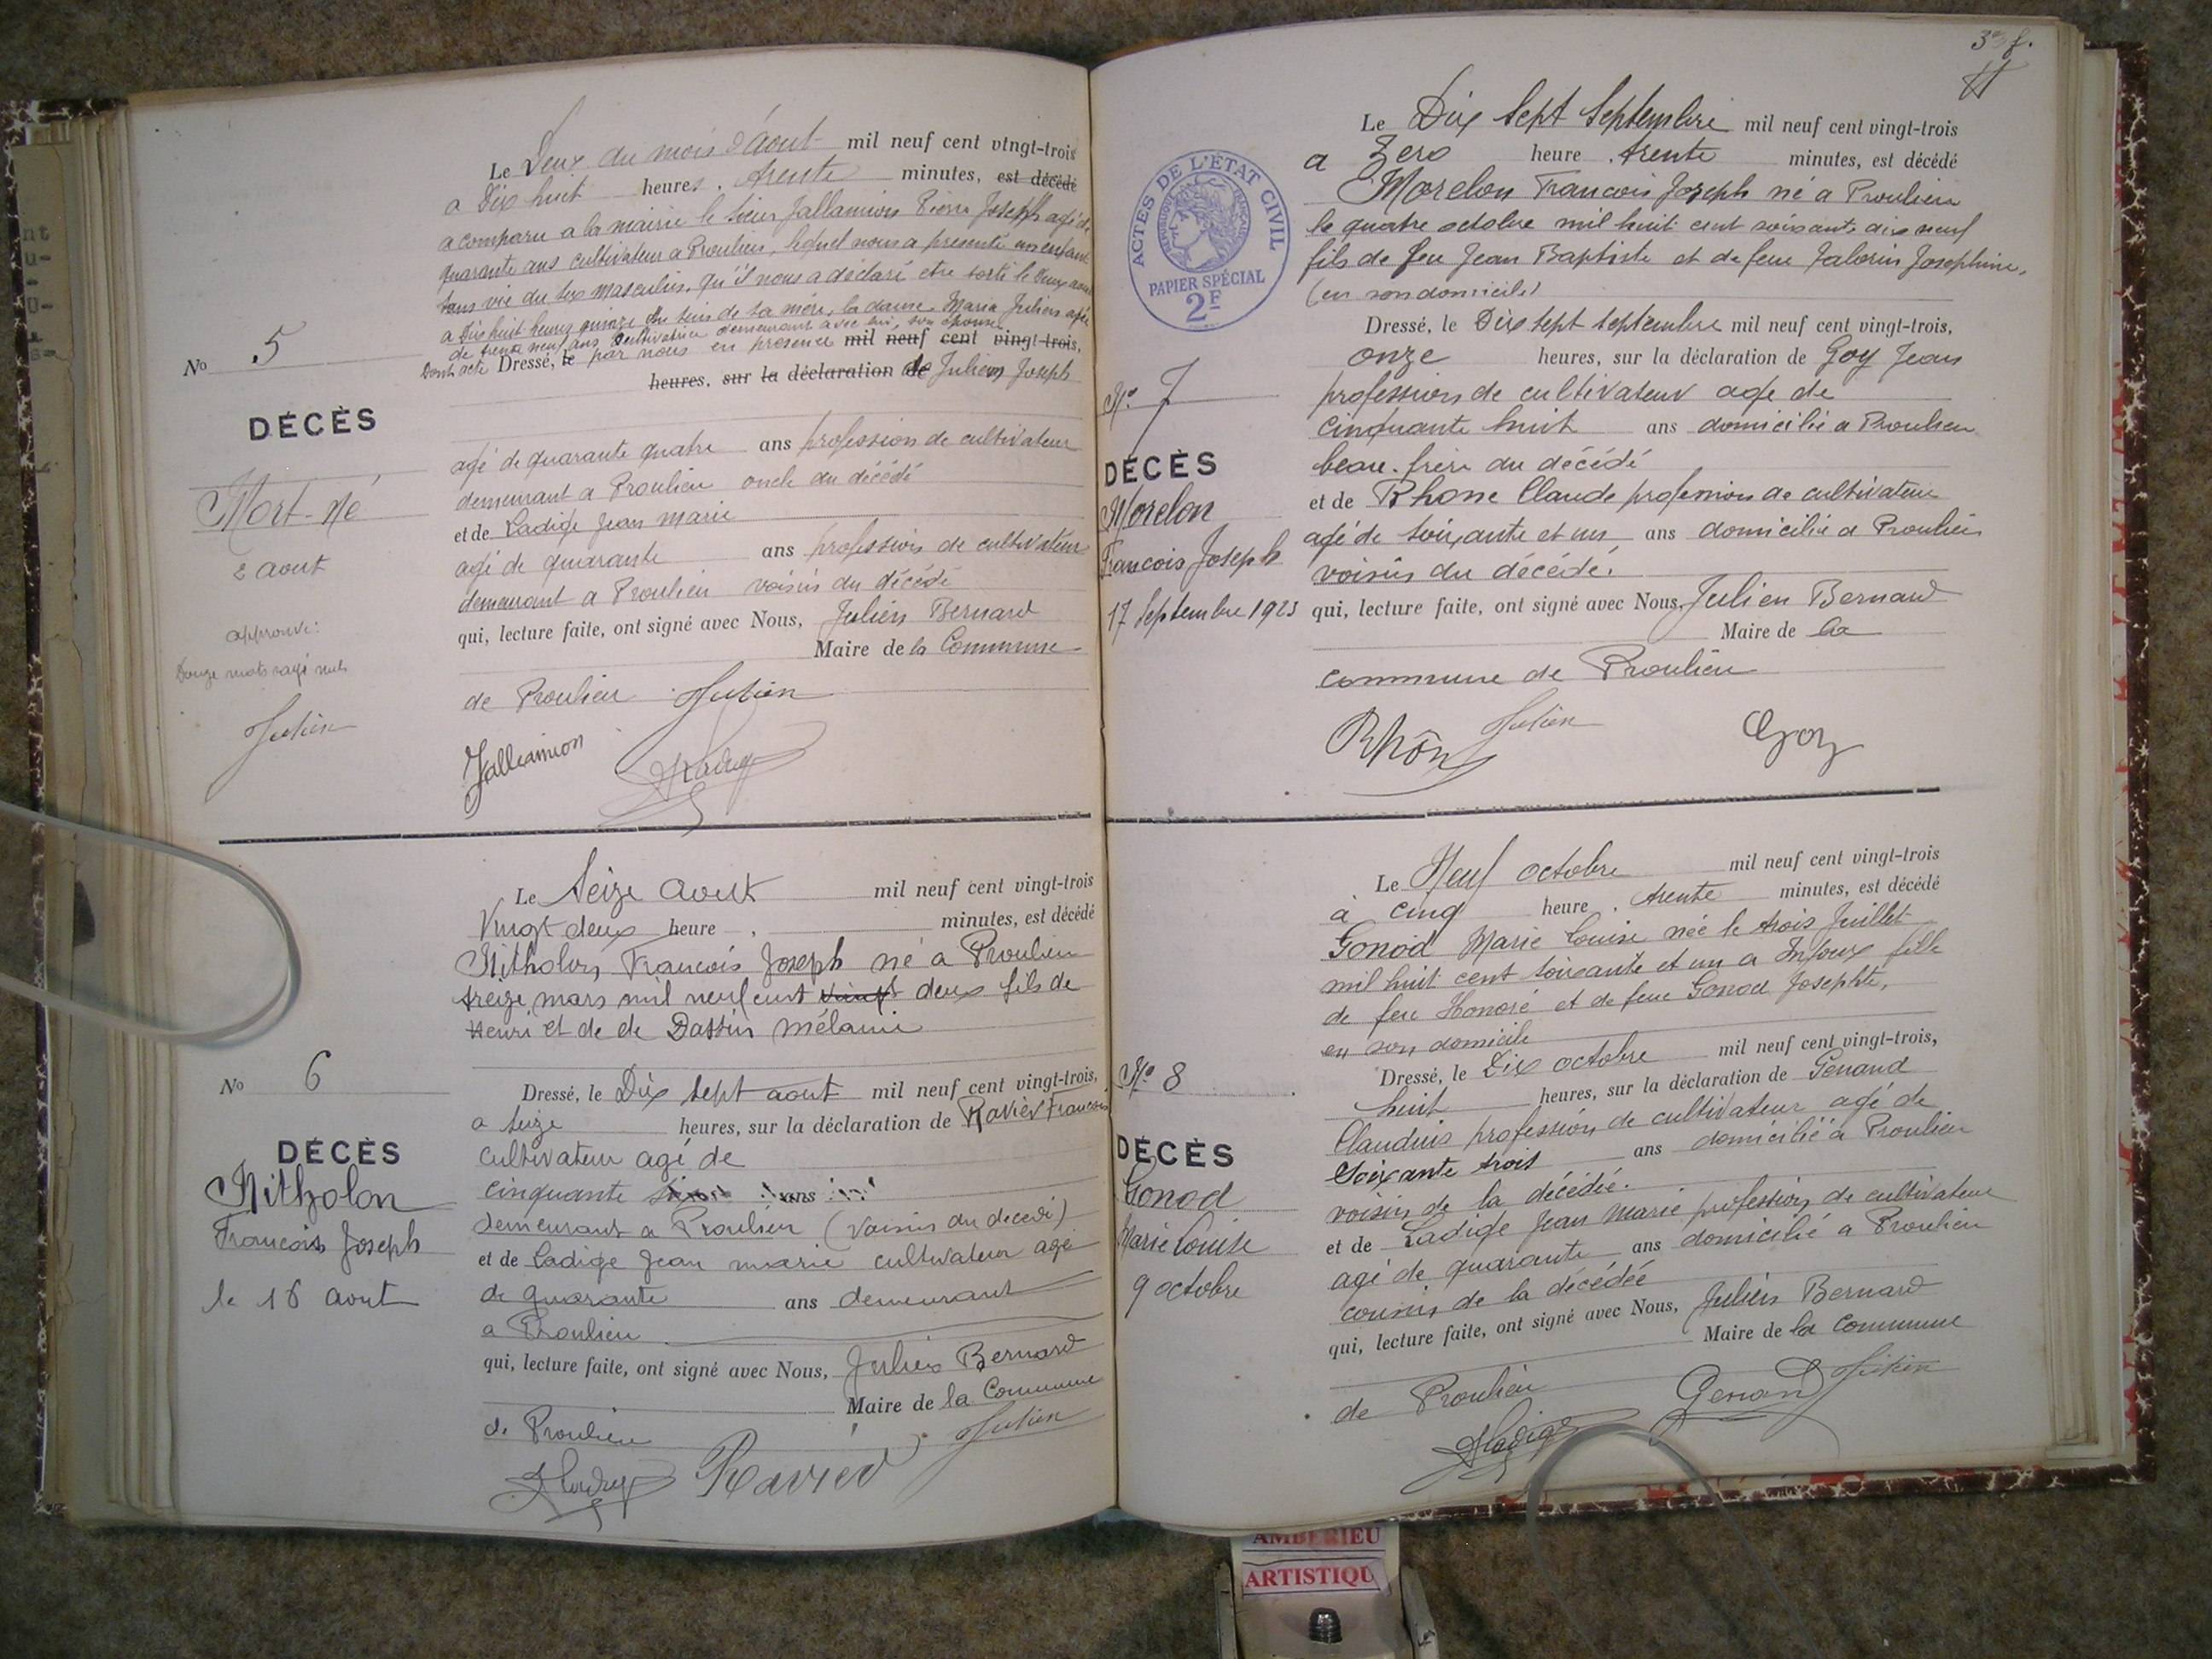 Le Deux du mois d'aout mil neuf cent vingt-trois
a Dix huit heures, trente minutes, est décédé
a comparu a la mairie le sieur Jallamion Pierre Joseph agé de
quarante ans cultivateur a Proulieu, lequel nous a presenté un enfant
sans vie du sex masculin, qu'il nous a déclaré etre sorti le deux aout
a Dix huit heures quinze du sein de sa mère, la dame Maria Julien agée
de trente neuf ans cultivatrice demeurant avec lui, son épouse
Dont acte Dressé, le par nous en présence mil neuf cent vingt-trois,
heures, sur la déclaration de Julien Joseph
No 5
DÉCÈS
Mort-né
2 aout
approuvé:
Douze mots rayé nuls
Julien
agé de quarante quatre ans profession de cultivateur
demeurant a Proulieu oncle du décédé
et de Ladige Jean marie
agé de quarante ans profession de cultivateur
demeurant a Proulieu voisin du décédé
qui, lecture faite, ont signé avec Nous, Julien Bernard
Maire de la Commune
de Proulieu Julien
Jallamion Ladige
Le Seize aout mil neuf cent vingt-trois
Vingt deux heure , minutes, est décédé
Nitholon François Joseph né a Proulieu
treize mars mil neuf cent vingt deux fils de
Henri et de de Dassin mélanie
No 6
DÉCÈS
Nitholon
François Joseph
le 16 aout
Dressé, le Dix sept aout mil neuf cent vingt-trois,
a seize heures, sur la déclaration de Ravier François
cultivateur agé de
cinquante ans
demeurant a Proulieu (voisin du décédé)
et de Ladige Jean marie cultivateur agé
de quarante ans demeurant
a Proulieu
qui, lecture faite, ont signé avec Nous, Julien Bernard
Maire de la Commune
de Proulieu Julien
Ladige Ravier
Le Dix Sept Septembre mil neuf cent vingt-trois
a Zero heure , trente minutes, est décédé
Morelon François Joseph né a Proulieu
le quatre octobre mil huit cent soixante dix neuf
fils de feu Jean Baptiste et de feue Josephine,
(en son domicile)
ACTES DE L'ÉTAT CIVIL
RÉPUBLIQUE FRANÇAISE
PAPIER SPÉCIAL
2F
Dressé, le Dix sept septembre mil neuf cent vingt-trois,
onze heures, sur la déclaration de Goy Jean
profession de cultivateur agé de
cinquante huit ans domicilié a Proulieu
beau-frère du décédé
et de Rhone Claude profession de cultivateur
agé de soixante et un ans domicilié a Proulieu
voisin du décédé.
qui, lecture faite, ont signé avec Nous, Julien Bernard
Maire de la
commune de Proulieu
Rhône Julien Goy
No. 7
DÉCÈS
Morelon
François Joseph
17 Septembre 1923
Le Neuf octobre mil neuf cent vingt-trois
à cinq heure , trente minutes, est décédé
Gonod Marie Louise née le trois Juillet
mil huit cent soixante et un a fille
de feu Honoré et de feue Gonod Josephte,
en son domicile
No. 8
DÉCÈS
Gonod
Marie Louise
9 octobre
Dressé, le Dix octobre mil neuf cent vingt-trois,
huit heures, sur la déclaration de Genand
Claudius profession de cultivateur agé de
Soixante trois ans domicilié a Proulieu
voisin de la décédée.
et de Ladige Jean Marie profession de cultivateur
agé de quarante ans domicilié a Proulieu
cousin de la décédée
qui, lecture faite, ont signé avec Nous, Julien Bernard
Maire de la commune
de Proulieu Genand Julien
Ladige
AMBERIEU
ARTISTIQU